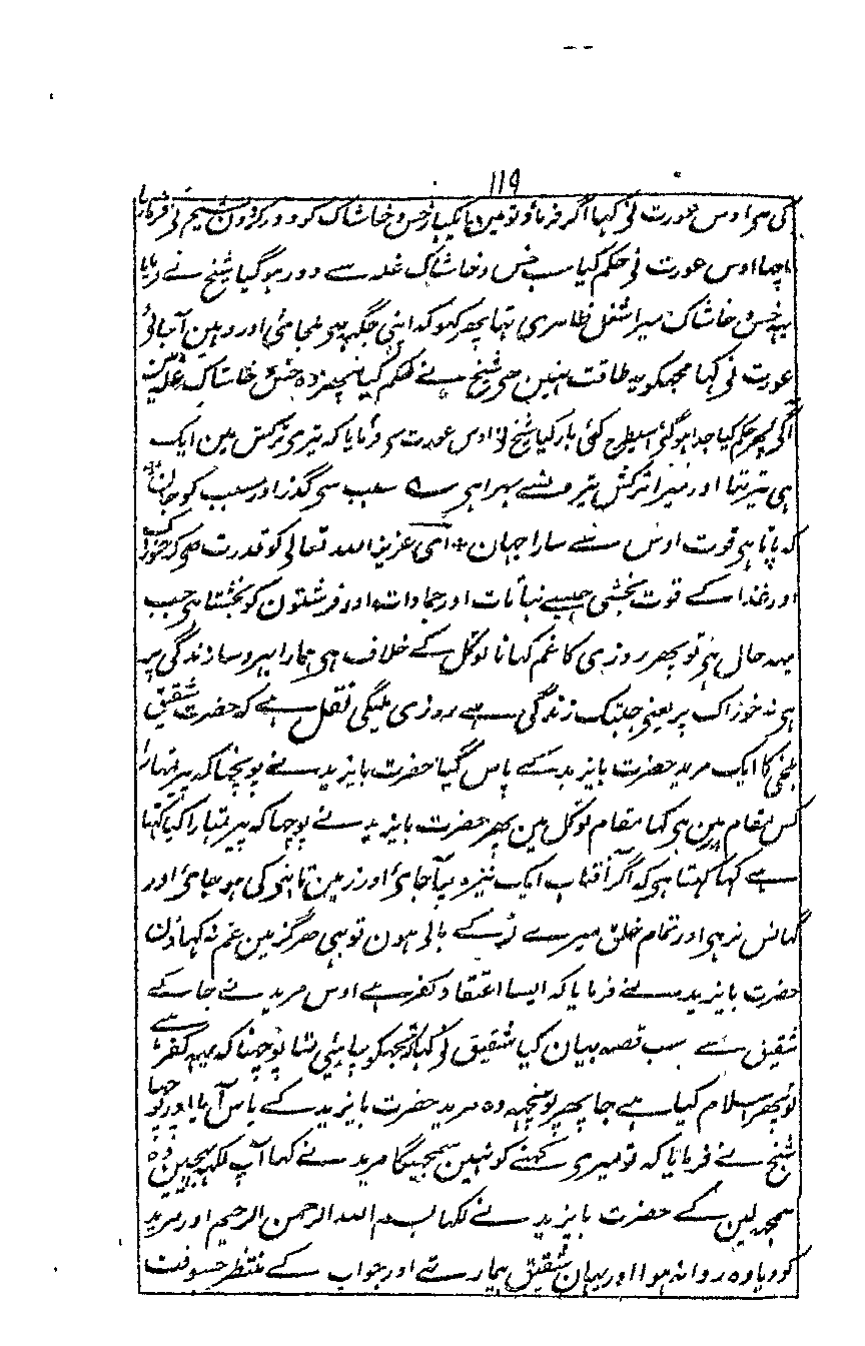 ١١٩
کی ہی اوس عورت نی کہا اگر فرماؤ تو مین یکبار خس و خاشاک کو دور کرون شیخ نی فرمایا
اچھا اوس عورت نی حکم کیا سب خس و خاشاک غلہ سے دور ہو گیا شیخ نے فرمایا
یہ خس و خاشاک میرا شغل ظاہری تہا پھر کہو کہ اپنی جگہہ پر
عورت نی کہا مجہکو یہ طاقت نہین ہی شیخ نے حکم کیا پھر وہ خس و خاشاک غلہ مین
آگئی پھر حکم کیا جدا ہو گئی اسیطرح کئی بار کیا شیخ نی اوس عورت سی فرمایا کہ تیری ترکش مین ایک
ہی تیر تہا اور میرا ترکش تیرونسے بہرا ہی ے سبب سی گذر اور سبب کو جان
کہ پاتا ہی قوت اوس سے سارا جہان * ای عزیز اللہ تعالی کو قدرت ہی کہ خوراک
اور غذا کے قوت بخشی جیسے نباتات اور جمادات اور فرشتون کو بخشتا ہی جب
یہہ حال ہی تو پھر روزی کا غم کہانا توکل کے خلاف ہی ہمارا بہروسا زندگی پر
ہی نہ خوراک پر یعنی جبتک زندگی ہے روزی ملیگی نقل ہے کہ حضرت شقیق
بلخی کا ایک مرید حضرت بایزید کے پاس گیا حضرت بایزید نے پوچہا کہ پیر تمہارا
کس مقام مین ہی کہا مقام توکل مین پھر حضرت بایزید نے پوچہا کہ پیر تمہارا کیا کہتا
ہے کہا کہتا ہی کہ اگر آفتاب ایک نیزہ پر آجائی اور زمین تانبی کی ہو جائی اور
گہانس نرہی اور تمام خلق میرے لڑکے بالی ہون تو بہی ہرگز مین غم نہ کہاؤن
حضرت بایزید نے فرمایا کہ ایسا اعتقاد کفر ہے اوس مرید نے جا کے
شقیق سے سب قصہ بیان کیا شقیق نی کہا کہ تجہکو چاہئی تہا پوچہنا کہ یہہ کفر ہے
تو پھر اسلام کیا ہے جا پھر پوچہہ وہ مرید حضرت بایزید کے پاس آیا اور پوچہا
شیخ نے فرمایا کہ تو میری کہنے کو نہین سمجہیگا مرید نے کہا آپ لکہہ بہیجین وہ
سمجہہ لین گے حضرت بایزید نے لکہا بسم اللہ الرحمن الرحیم اور مرید
کو دیا وہ روانہ ہوا اور یہان شقیق بیمار تھے اور جواب کے منتظر جسوقت